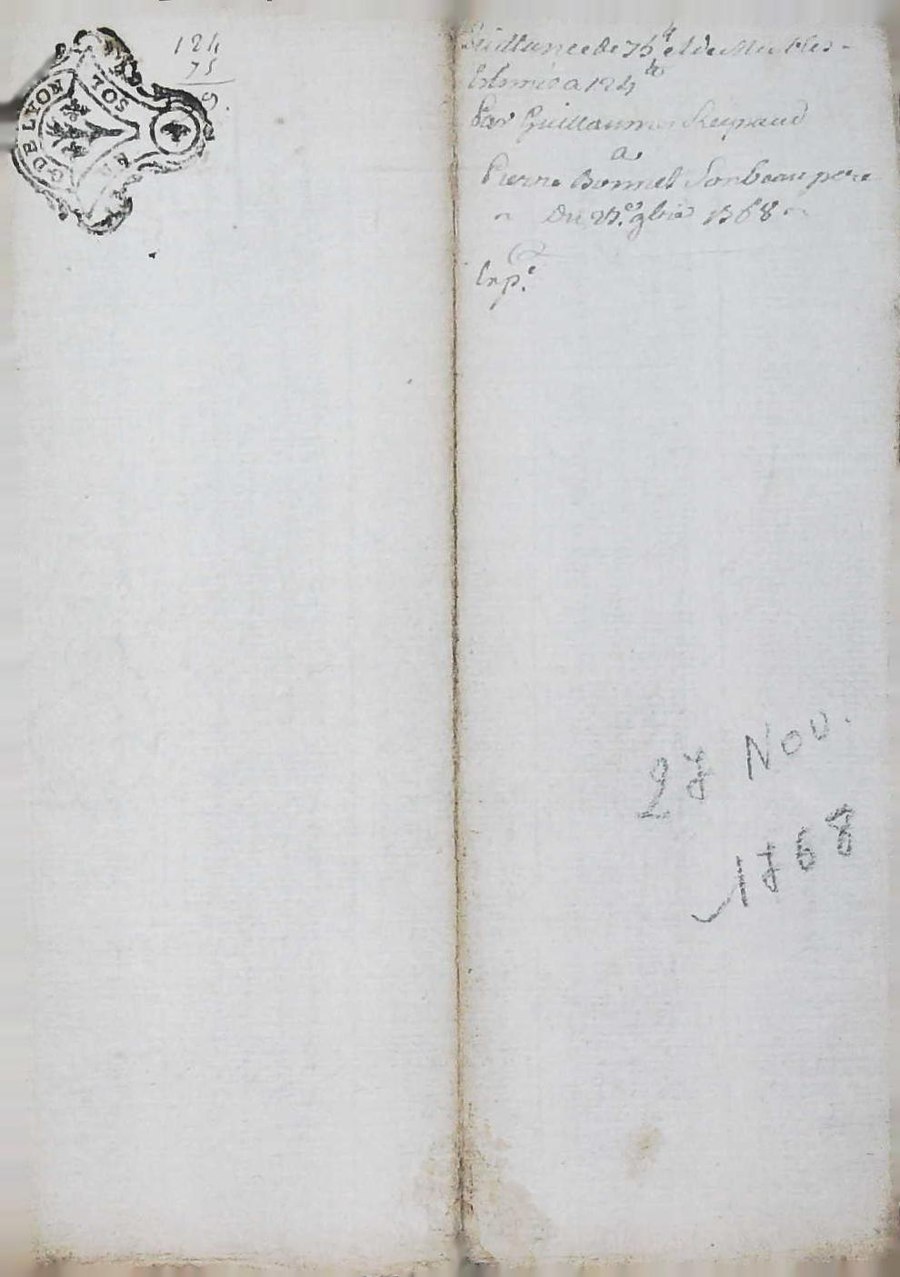 124
75
9.
G. DE LYON
SOL
Quittance de 75 lt et de Meubles
Estimés a 124 lt
Par Guillaume Reynaud
a
Pierre Bonnet Son beau pere
Du 27.e 9bre 1768
Exp.e
27 Nov.
1768